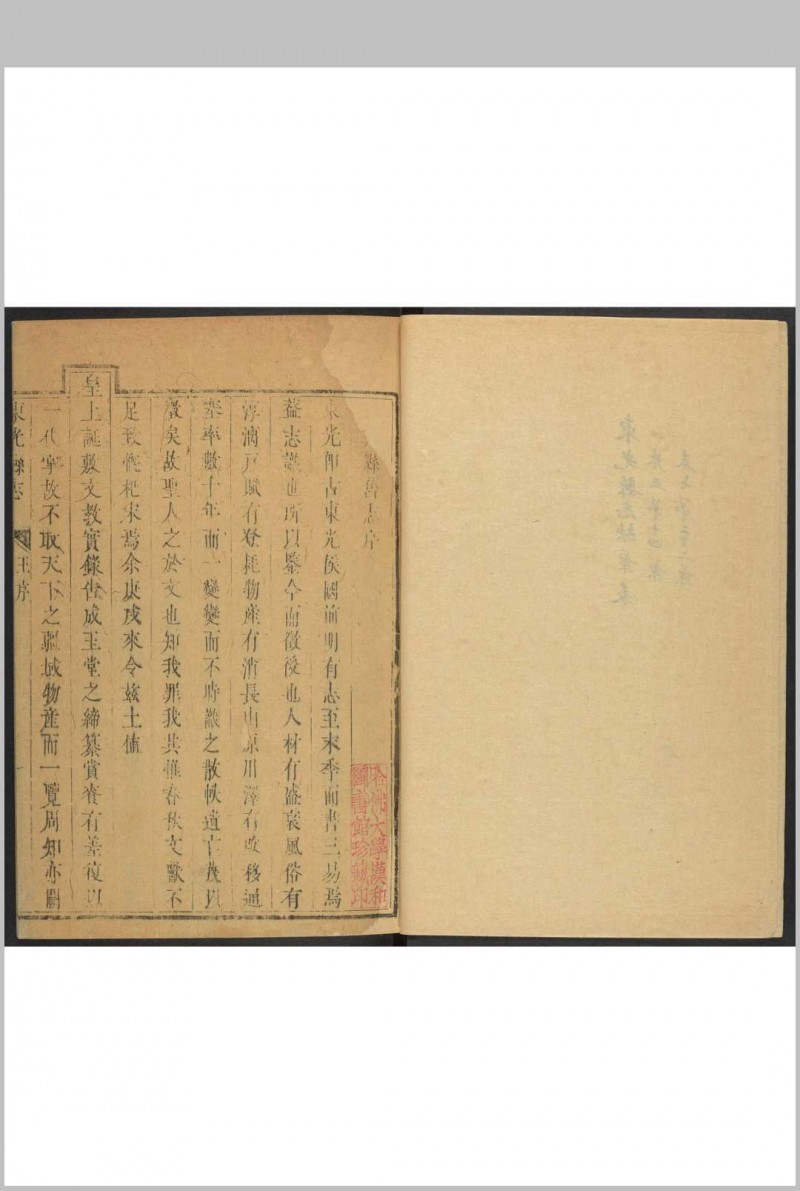 縣舊志序
東光卽古東光侯國前明有志至末季而書三易焉
蓋志識也所以鑒今而徵後也人材有盛衰風俗有
淳漓戸賦有登耗物產有消長山原川澤有改移通
塞率數十年而一變變而不時識之散帙遺亡幾以
廢矣故聖人之於文也知我罪我其惟春秋文獻不
足致慨杞宋焉余庚戌來令玆土値
皇上誕敷文教實錄告成玉堂之締纂賞賚有差復以
一代宰故不取天下之疆域物產而一覽周知亦闕
東光縣志 王序
哈佛大學漢和
圖書館珍藏印
東光縣志